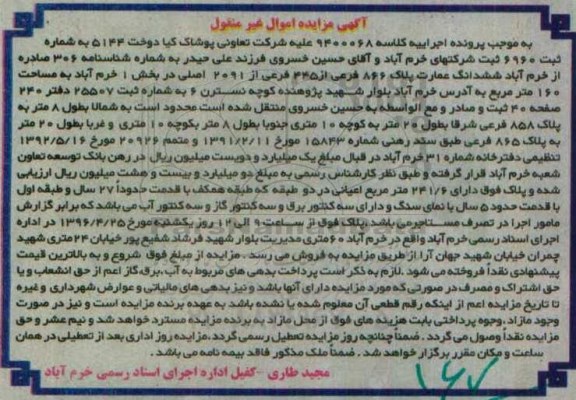 آگهی مزایده اموال غیر منقول
به موجب پرونده اجراییه کلاسه ۹۴۰۰۰۶۸ علیه شرکت تعاونی پوشاک کیا دوخت ۵۱۴۴ به شماره
ثبت ۶۹۶۰ ثبت شرکتهای خرم آباد و آقای حسین خسروی فرزند علی حیدر به شماره شناسنامه ۳۰۶ صادره
از خرم آباد ششدانگ عمارت پلاک ۸۶۶ فرعی از۲۴۵ فرعی از ۲۰۹۱ اصلی در بخش ۱ خرم آباد به مساحت
۱۶۰ متر مربع به آدرس خرم آباد بلوار شهید پژوهنده کوچه نسترن ۶ به شماره ثبت ۲۵۵۰۷ دفتر ۲۴۰
صفحه ۴۰ ثبت و صادر و مع الواسطه به حسین خسروی منتقل شده است محدود است به شمالا بطول ۸ متر به
پلاک ۸۵۸ فرعی شرقا بطول ۲۰ متر به کوچه ۱۰ متری جنوبا بطول ۸ متر بکوچه ۱۰ متری و غربا بطول ۲۰ متر
به پلاک ۸۶۵ فرعی طبق سند رهنی شماره ۱۵۸۴۳ مورخ ۱۳۹۱/۲/۱۱ و متمم ۲۰۹۲۶ مورخ ۱۳۹۲/۵/۱۶
تنظیمی دفترخانه شماره ۳۱ خرم آباد در قبال مبلغ یک میلیارد و دویست میلیون ریال در رهن بانک توسعه تعاون
شعبه خرم آباد قرار گرفته و طبق نظر کارشناس رسمی به مبلغ دو میلیارد و بیست و هشت میلیون ریال ارزیابی
شده و پلاک فوق دارای ۲۴۱/۶ متر مربع اعیانی در دو طبقه که طبقه همکف با قدمت حدوداً ۲۷ سال و طبقه اول
با قدمت حدود ۵ سال با نمای سنگ و دارای سه کنتور برق و سه کنتور گاز و سه کنتور آب می باشد که برابر گزارش
مامور اجرا در تصرف مستاجر می باشد. پلاک فوق از ساعت ۹ الی ۱۲ روز یکشنبه مورخ ۱۳۹۶/۴/۲۵ در اداره
اجرای اسناد رسمی خرم آباد واقع در خرم آباد ۶۰متری مدیریت بلوار شهید فرشاد شفیع پور خیابان ۲۴ متری شهید
چمران خیابان شهید جهان آرا از طریق مزایده به فروش می رسد . مزایده از مبلغ فوق شروع و به بالاترین قیمت
پیشنهادی نقداً فروخته می شود .لازم به ذکر است پرداخت بدهی های مربوط به آب، برق، گاز اعم از حق انشعاب و یا
حق اشتراک و مصرف در صورتی که مورد مزایده دارای آنها باشد و نیز بدهی های مالیاتی و عوارض شهرداری و غیره
تا تاریخ مزایده اعم از اینکه رقم قطعی آن معلوم شده یا نشده باشد به عهده برنده مزایده است و نیز در صورت
وجود مازاد ،وجوه پرداختی بابت هزینه های فوق از محل مازاد به برنده مزایده مسترد خواهد شد و نیم عشر و حق
مزایده نقداً وصول می گردد . ضمناً چنانچه روز مزایده تعطیل رسمی گردد ،مزایده روز اداری بعد از تعطیلی در همان
ساعت و مکان مقرر برگزار خواهد شد . ضمناً ملک مذکور فاقد بیمه نامه می باشد .
مجید طاری -کفیل اداره اجرای اسناد رسمی خرم آباد